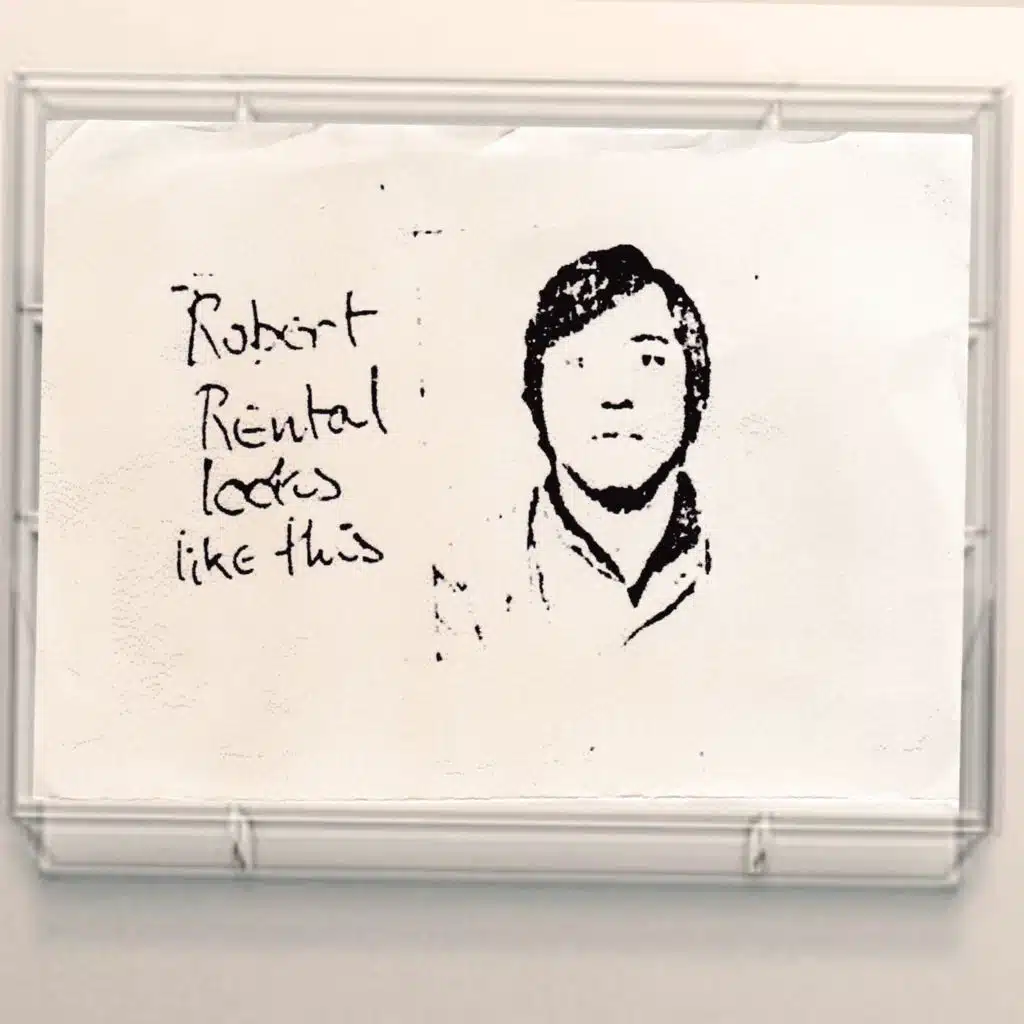 Robert
Rental
looks
like this